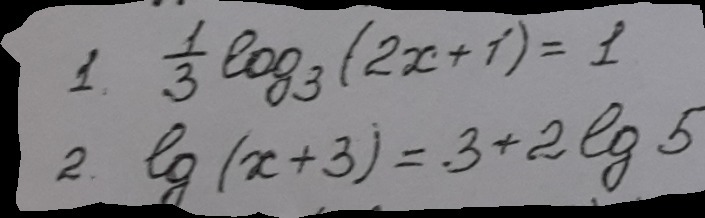 1. 1/3 log₃(2x+1) = 1
2. lg(x+3) = 3+2 lg 5